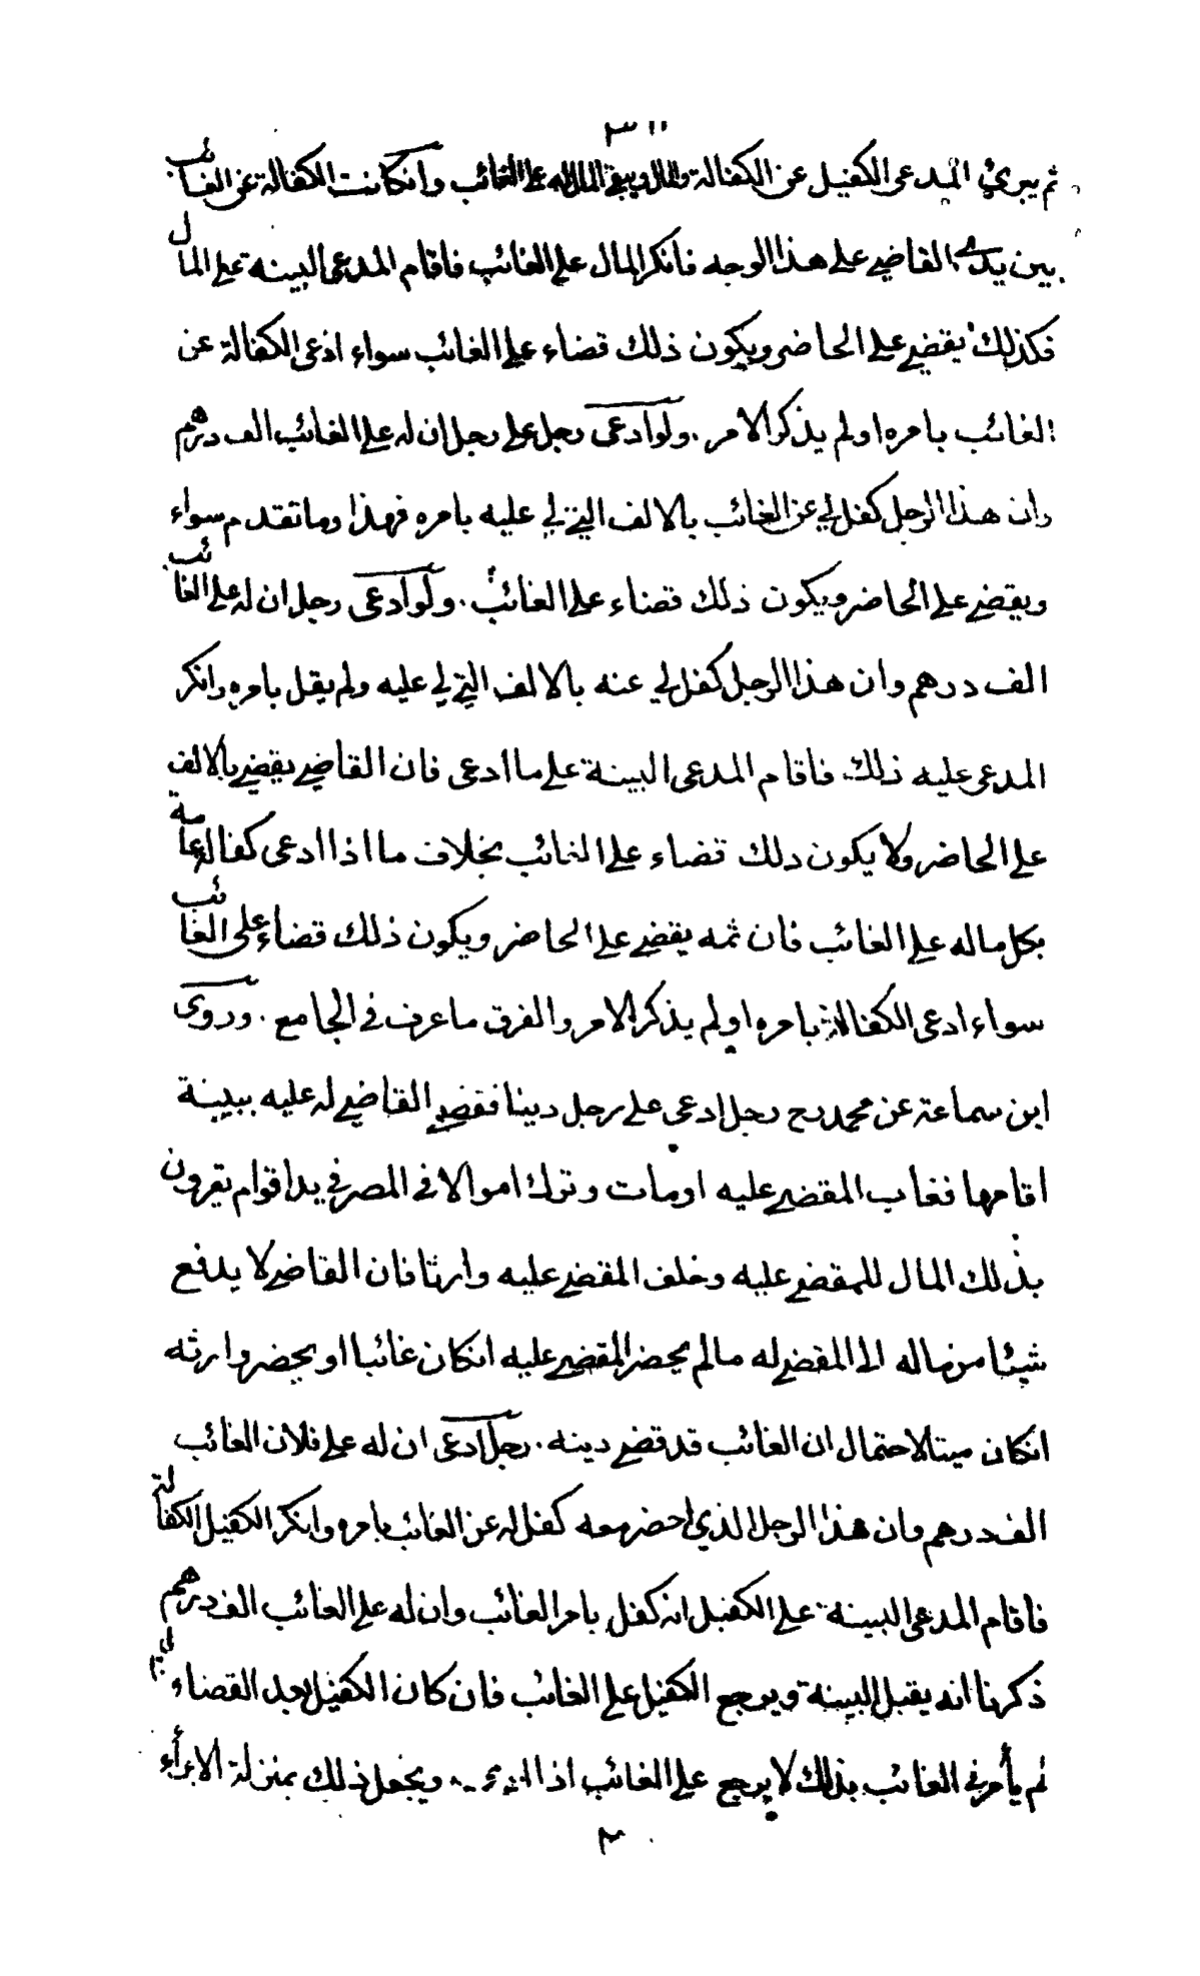 ٣١١
ثم يبرئ المدعى الكفيل عن الكفالة والمال ويبقى المال له على الغائب وانكانت الكفالة عن الغائب
بين يدى القاضي على هذا الوجه فانكر المال على الغائب فاقام المدعى البينة على المال
فكذلك يقضي على الحاضر ويكون ذلك قضاء على الغائب سواء ادعى الكفالة عن
الغائب بامره اولم يذكر الامر . ولو ادعى رجل على رجل ان له على الغائب الف درهم
وان هذا الرجل كفل لي عن الغائب بالالف التي لي عليه بامره فهذا وما تقدم سواء
ويقضي على الحاضر ويكون ذلك قضاء على الغائب . ولو ادعى رجل ان له على الغائب
الف درهم وان هذا الرجل كفل لي عنه بالالف التي لي عليه ولم يقل بامره وانكر
المدعى عليه ذلك فاقام المدعى البينة على ما ادعى فان القاضي يقضي بالالف
على الحاضر ولا يكون دلك قضاء على الغائب بخلاف ما اذا ادعى كفالة عامة
بكل ماله على الغائب فان ثمه يقضي على الحاضر ويكون ذلك قضاء على الغائب
سواء ادعى الكفالة بامره او لم يذكر الامر والفرق ما عرف في الجامع . وروى
ابن سماعة عن محمد رح رجل ادعى على رجل دينا فقضى القاضي له عليه ببينة
اقامها فغاب المقضي عليه اومات وترك اموالا في المصر في يد اقوام يقرون
بذلك المال للمقضي عليه وخلف المقضي عليه وارثا فان القاضي لا يدفع
شيئا من ماله الى المقضي له مالم يحضر المقضي عليه انكان غائبا او يحضر وارثه
انكان ميتا لاحتمال ان الغائب قد قضى دينه . رجل ادعى ان له على فلان الغائب
الف درهم وان هذا الرجل الذي احضر معه كفل له عن الغائب بامره وانكر الكفيل الكفالة
فاقام المدعى البينة على الكفيل انه كفل بامر الغائب وان له على الغائب الف درهم
ذكرنا انه يقبل البينة ويرجع الكفيل على الغائب فان كان الكفيل بعد القضاء
لم يأمرني الغائب بذلك لا يرجع على الغائب اذا ويجعل ذلك بمنزلة الابراء